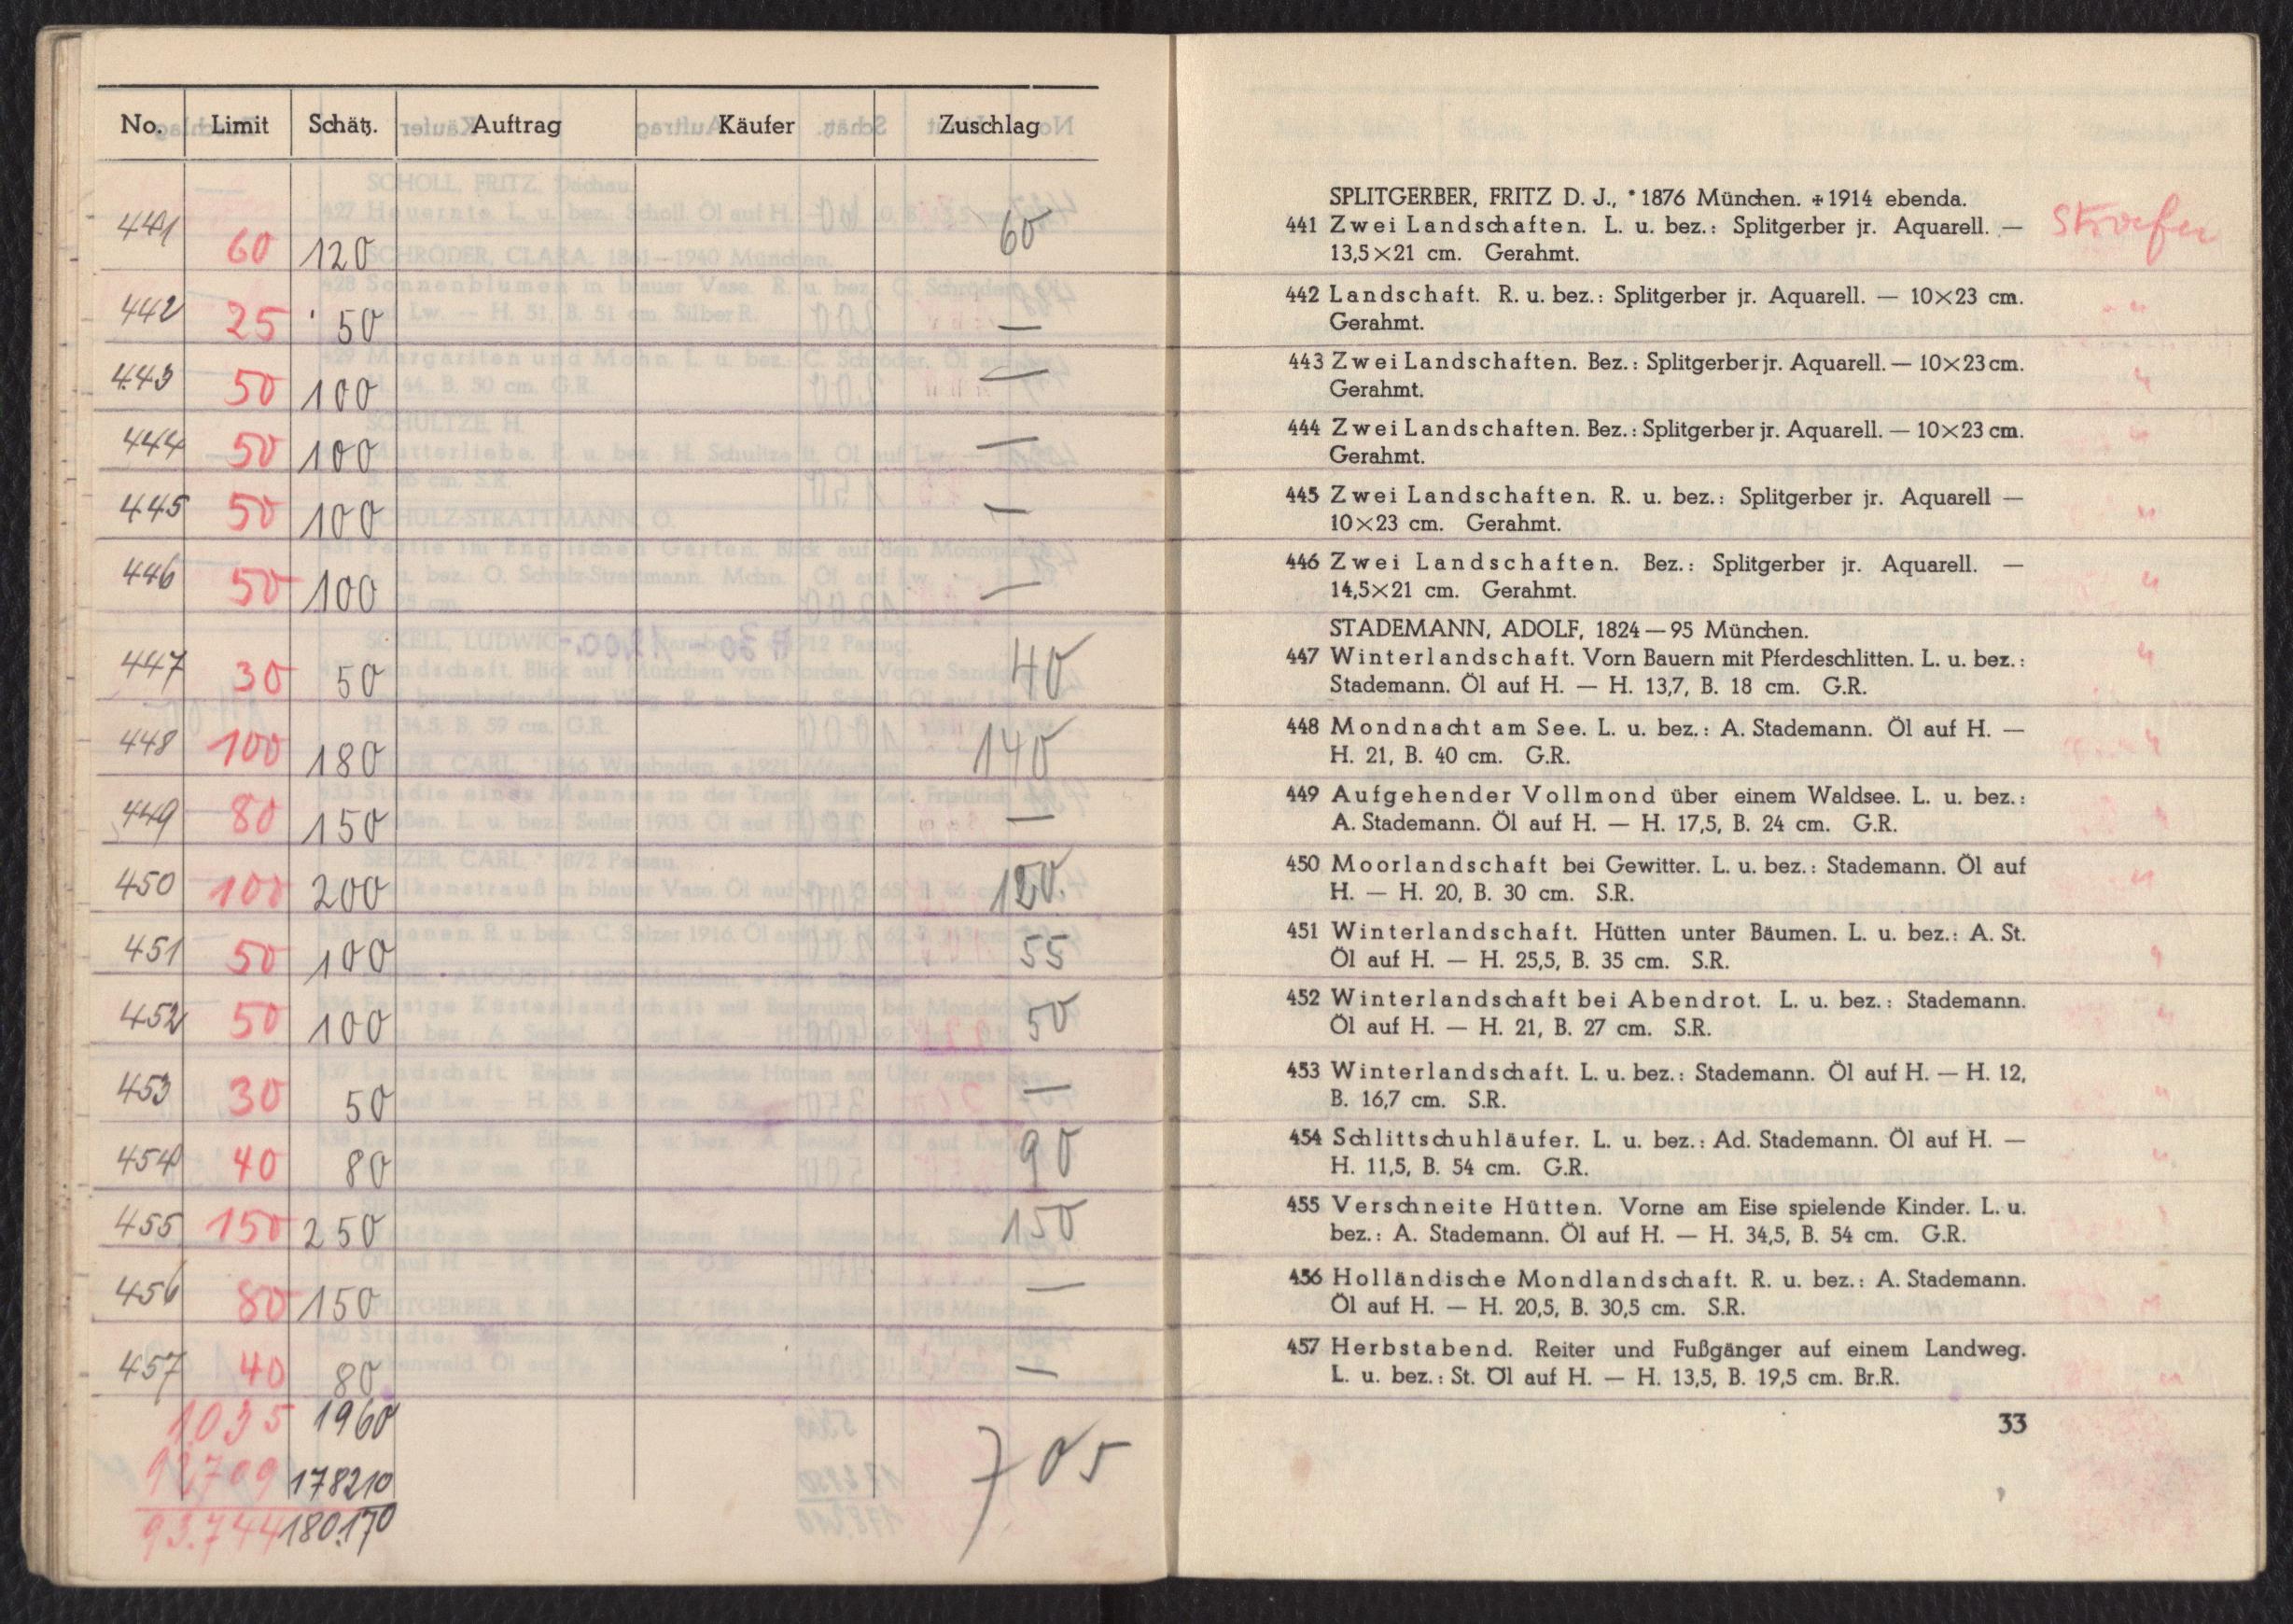 No. Limit Schätz. Auftrag Käufer Zuschlag
441 60 120 60
442 25 50 —
443 50 100 —
444 50 100 —
445 50 100 —
446 50 100 —
447 30 50 40
448 100 180 140
449 80 150 —
450 100 200 120.
451 50 100 55
452 50 100 50
453 30 50 —
454 40 80 90
455 150 250 150
456 80 150 —
457 40 80 —
1035 1960
92709 178210
93.744 180.170
705
SPLITGERBER, FRITZ D. J., * 1876 München. ✝ 1914 ebenda.
441 Zwei Landschaften. L. u. bez.: Splitgerber jr. Aquarell. —
13,5×21 cm. Gerahmt.
442 Landschaft. R. u. bez.: Splitgerber jr. Aquarell. — 10×23 cm.
Gerahmt.
443 Zwei Landschaften. Bez.: Splitgerber jr. Aquarell. — 10×23 cm.
Gerahmt.
444 Zwei Landschaften. Bez.: Splitgerber jr. Aquarell. — 10×23 cm.
Gerahmt.
445 Zwei Landschaften. R. u. bez.: Splitgerber jr. Aquarell —
10×23 cm. Gerahmt.
446 Zwei Landschaften. Bez.: Splitgerber jr. Aquarell. —
14,5×21 cm. Gerahmt.
STADEMANN, ADOLF, 1824—95 München.
447 Winterlandschaft. Vorn Bauern mit Pferdeschlitten. L. u. bez.:
Stademann. Öl auf H. — H. 13,7, B. 18 cm. G.R.
448 Mondnacht am See. L. u. bez.: A. Stademann. Öl auf H. —
H. 21, B. 40 cm. G.R.
449 Aufgehender Vollmond über einem Waldsee. L. u. bez.:
A. Stademann. Öl auf H. — H. 17,5, B. 24 cm. G.R.
450 Moorlandschaft bei Gewitter. L. u. bez.: Stademann. Öl auf
H. — H. 20, B. 30 cm. S.R.
451 Winterlandschaft. Hütten unter Bäumen. L. u. bez.: A. St.
Öl auf H. — H. 25,5, B. 35 cm. S.R.
452 Winterlandschaft bei Abendrot. L. u. bez.: Stademann.
Öl auf H. — H. 21, B. 27 cm. S.R.
453 Winterlandschaft. L. u. bez.: Stademann. Öl auf H. — H. 12,
B. 16,7 cm. S.R.
454 Schlittschuhläufer. L. u. bez.: Ad. Stademann. Öl auf H. —
H. 11,5, B. 54 cm. G.R.
455 Verschneite Hütten. Vorne am Eise spielende Kinder. L. u.
bez.: A. Stademann. Öl auf H. — H. 34,5, B. 54 cm. G.R.
456 Holländische Mondlandschaft. R. u. bez.: A. Stademann.
Öl auf H. — H. 20,5, B. 30,5 cm. S.R.
457 Herbstabend. Reiter und Fußgänger auf einem Landweg.
L. u. bez.: St. Öl auf H. — H. 13,5, B. 19,5 cm. Br.R.
33